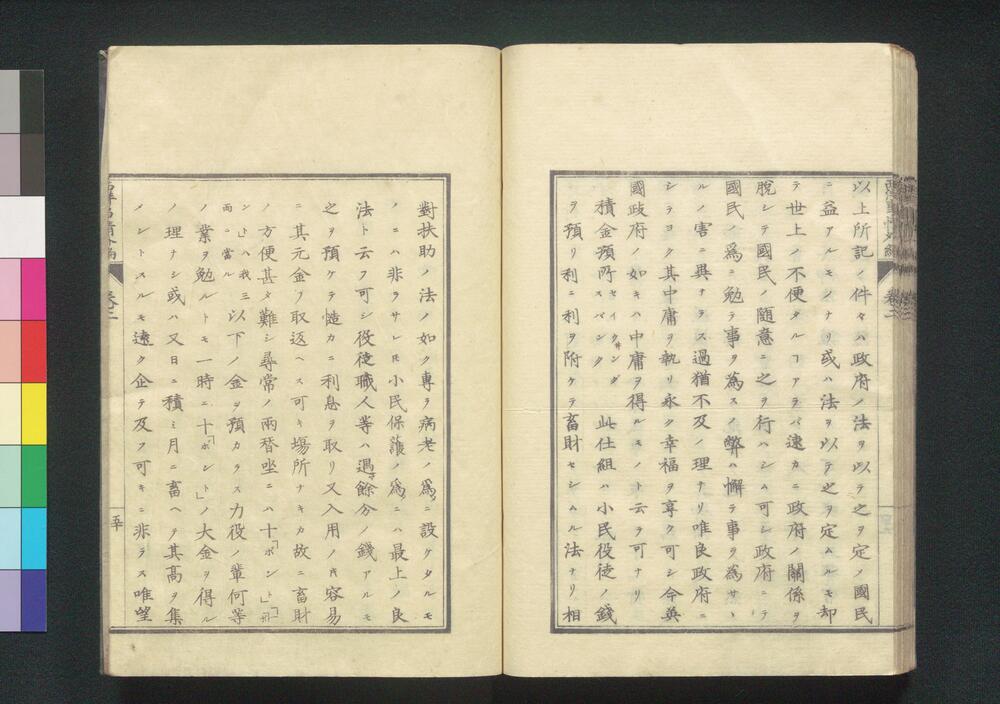 以上所記ノ件々ハ政府ノ法ヲ以テ之ヲ定メ國民
ニ益アルモノナリ或ハ法ヲ以テ之ヲ定ムルモ却
テ世上ノ不便タルヿアラバ速カニ政府ノ關係ヲ
脫シテ國民ノ隨意ニ之ヲ行ハシム可シ政府ニテ
國民ノ爲ニ勉テ事ヲ爲スノ弊ハ懈テ事ヲ爲サヽ
ルノ害ニ異ナラス過猶不及ノ理ナリ唯良政府ニ
シテヨク其中庸ヲ執リ永ク幸福ヲ享ク可シ今英
國政府ノ如キハ中庸ヲ得ルモノト云ヲ可ナリ
積金預所 セイウ井ング スバンク 此仕組ハ小民役徒ノ錢
ヲ預リ利ニ利ヲ附ケテ畜財セシムル法ナリ相
對扶助ノ法ノ如ク專ラ病老ノ爲ニ設ケタルモ
ノニハ非ラサレ𪜈小民保護ノ爲ニハ最上ノ良
法ト云フ可シ役徒職人等ハ過予餘分ノ錢アルモ
之ヲ預ケテ慥カニ利息ヲ取リ又入用ノ𪜈容易
ニ其元金ヲ取返ヘス可キ場所ナキカ故ニ畜財
ノ方便甚タ難シ尋常ノ兩替坐ニハ十「ポント」
ント」ハ我三兩ニ當ル 以下ノ金ヲ預カラス力役ノ輩何等
ノ業ヲ勉ルトモ一時ニ十「ポント」ノ大金ヲ得ル
ノ理ナシ或ハ又日ニ積ミ月ニ畜ヘヲ其高ヲ集
メントスルモ遠ク企テ及フ可キニ非ラス唯望
卷三
五十